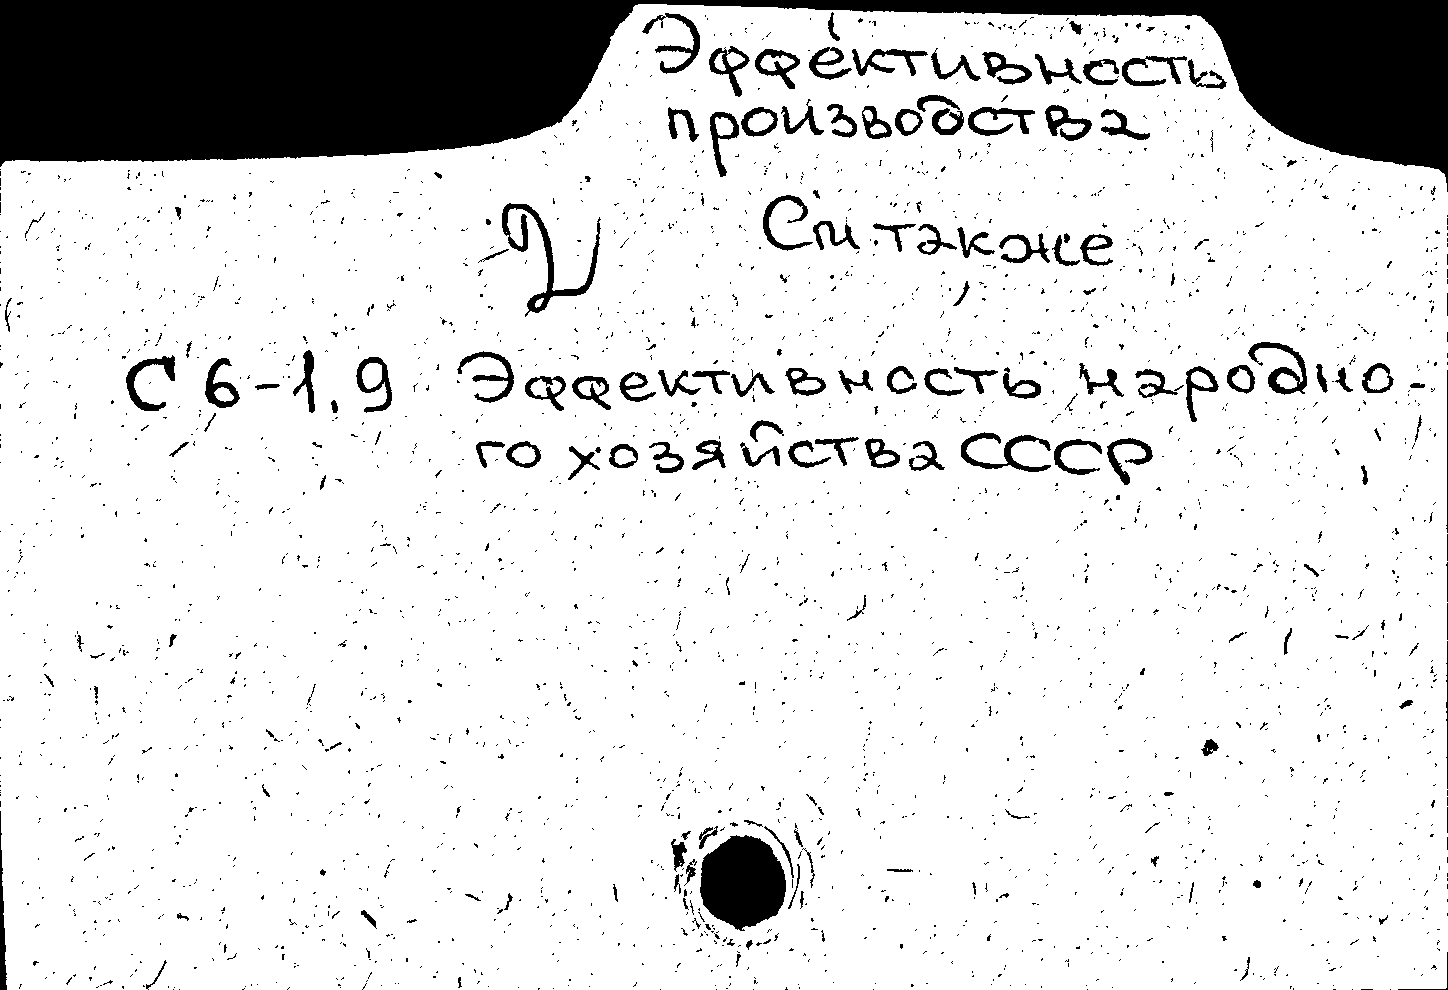 Эффективность
производства
См. также
С6-1.9 Эффективность народно-
го хозяйства СССР